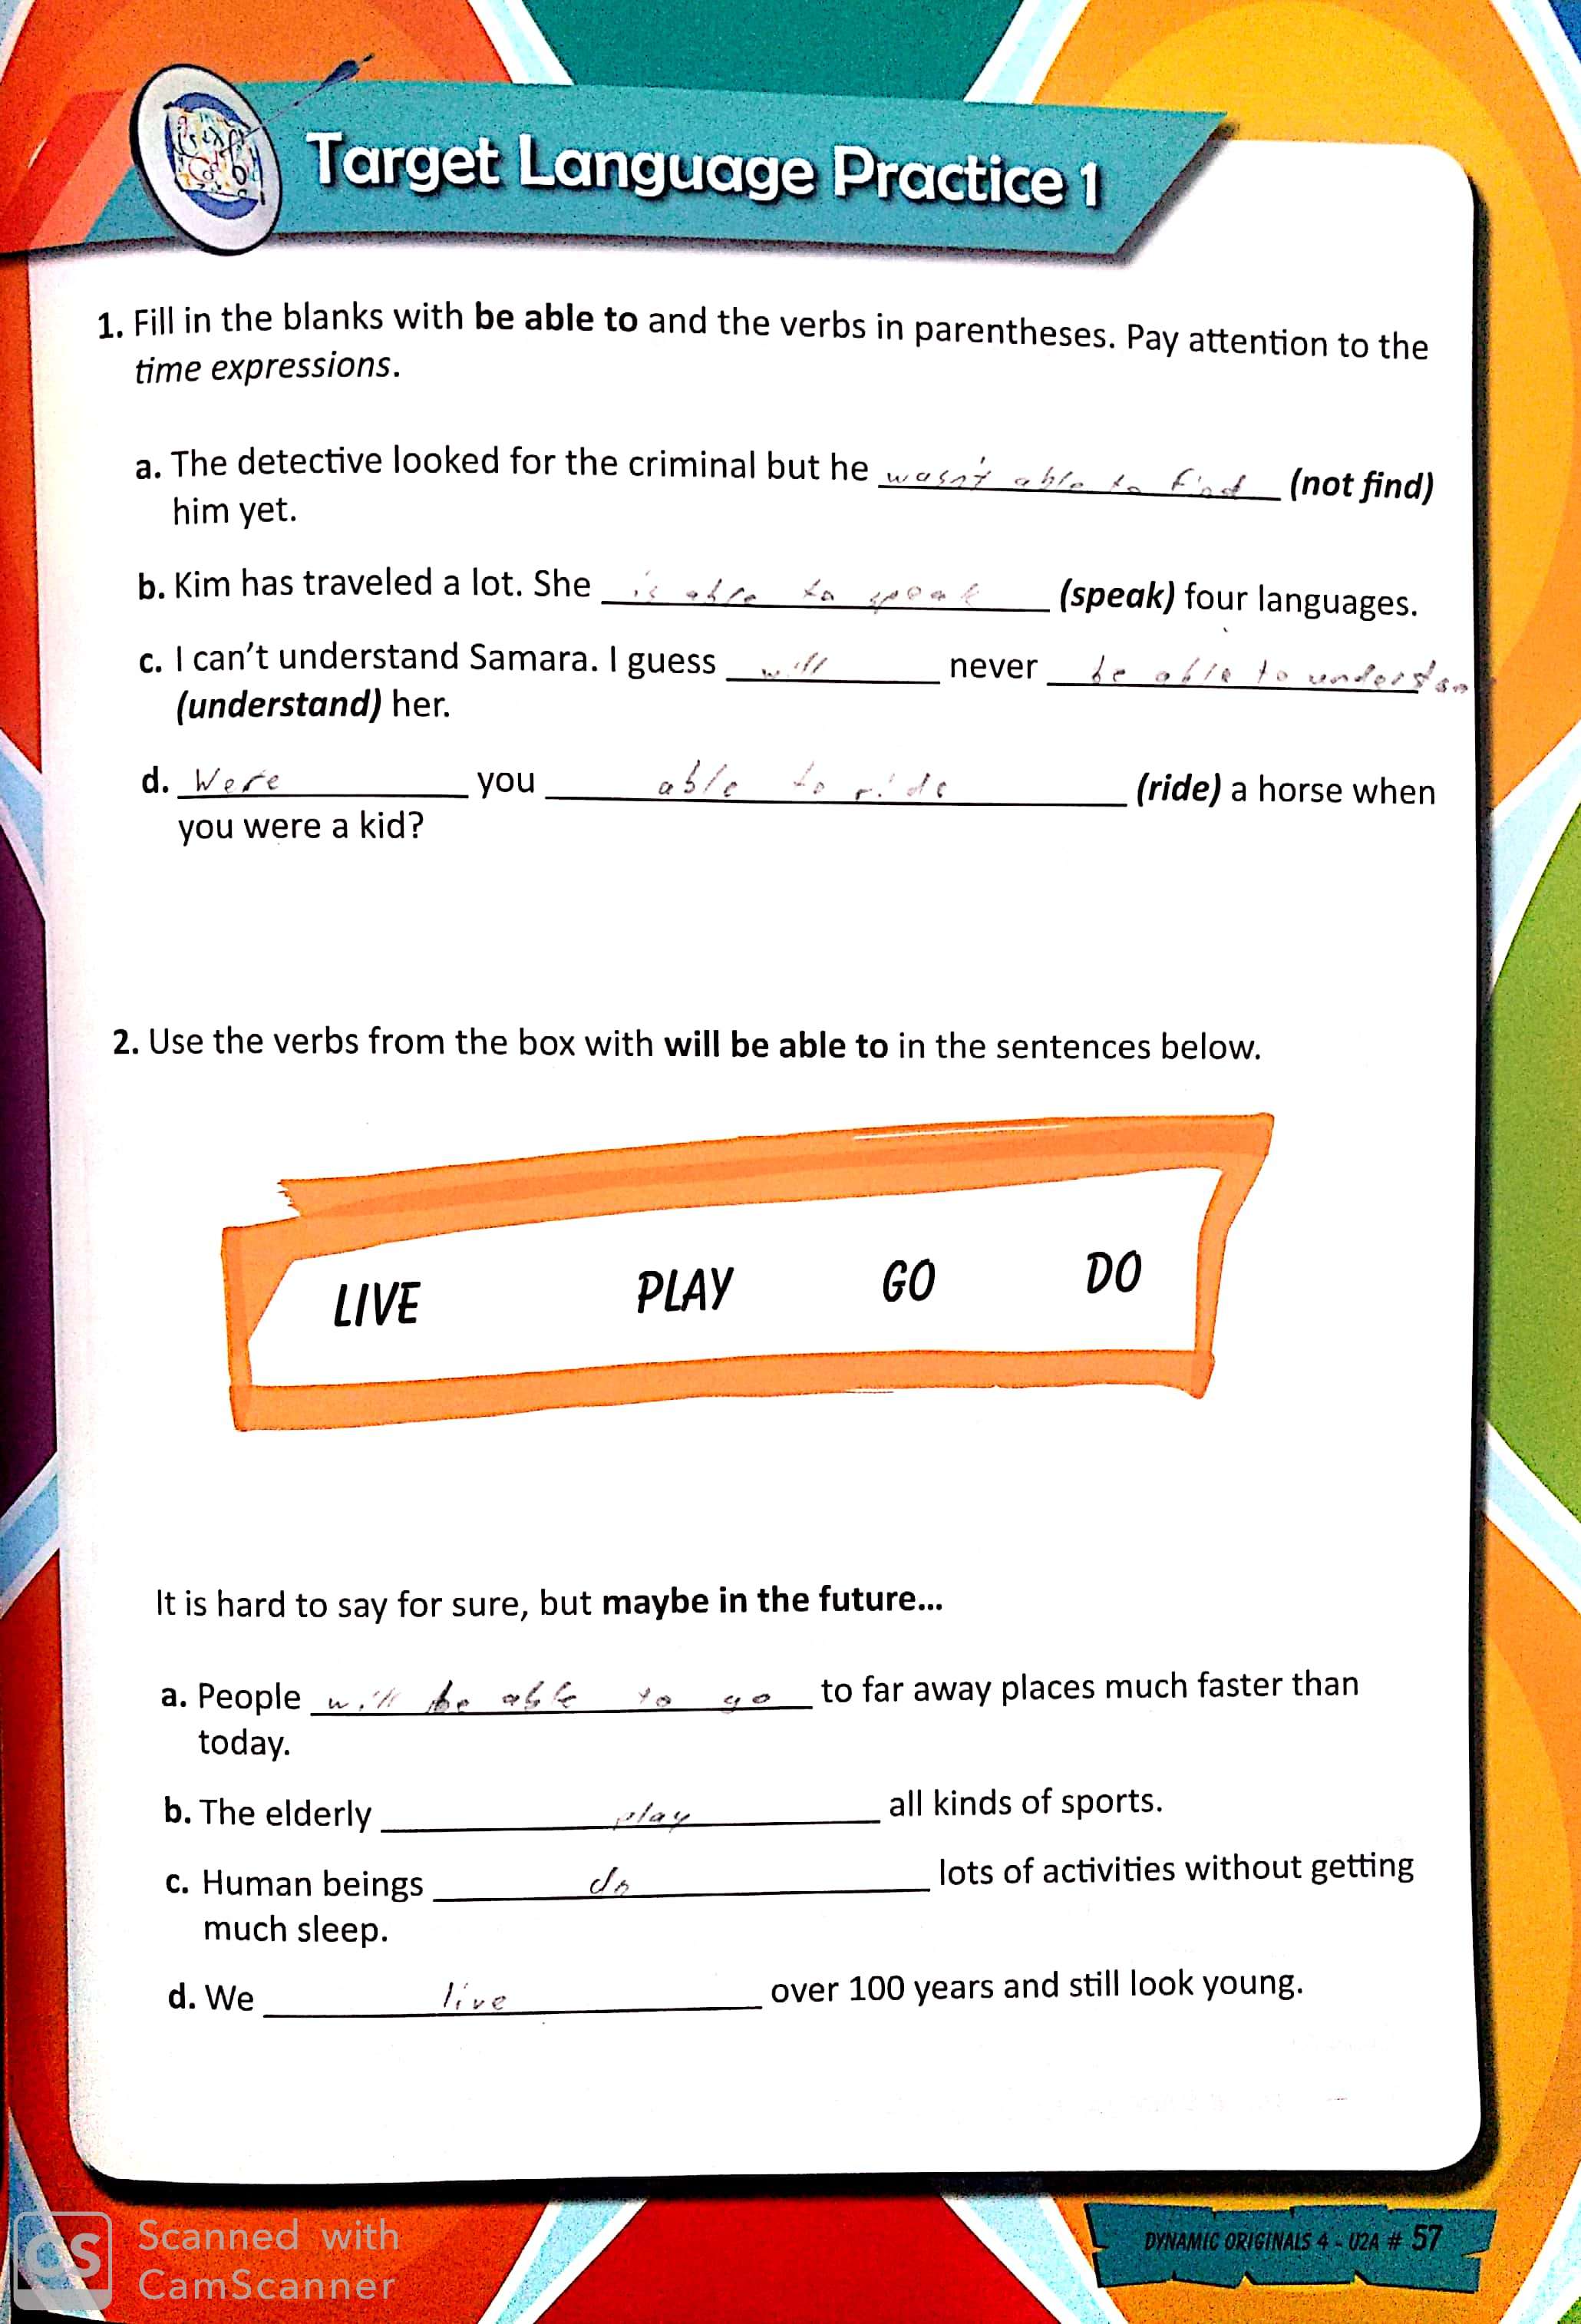 Target Language Practice 1
1. Fill in the blanks with be able to and the verbs in parentheses. Pay attention to the
time expressions.
a. The detective looked for the criminal but he wasn't able to find (not find)
him yet.
b. Kim has traveled a lot. She is able to speak (speak) four languages.
c. I can't understand Samara. I guess will never be able to understan
(understand) her.
d. Were you able to ride (ride) a horse when
you were a kid?
2. Use the verbs from the box with will be able to in the sentences below.
LIVE PLAY GO DO
It is hard to say for sure, but maybe in the future...
a. People will be able to go to far away places much faster than
today.
b. The elderly play all kinds of sports.
c. Human beings do lots of activities without getting
much sleep.
d. We live over 100 years and still look young.
DYNAMIC ORIGINALS 4 - U2A # 57
CS Scanned with
CamScanner